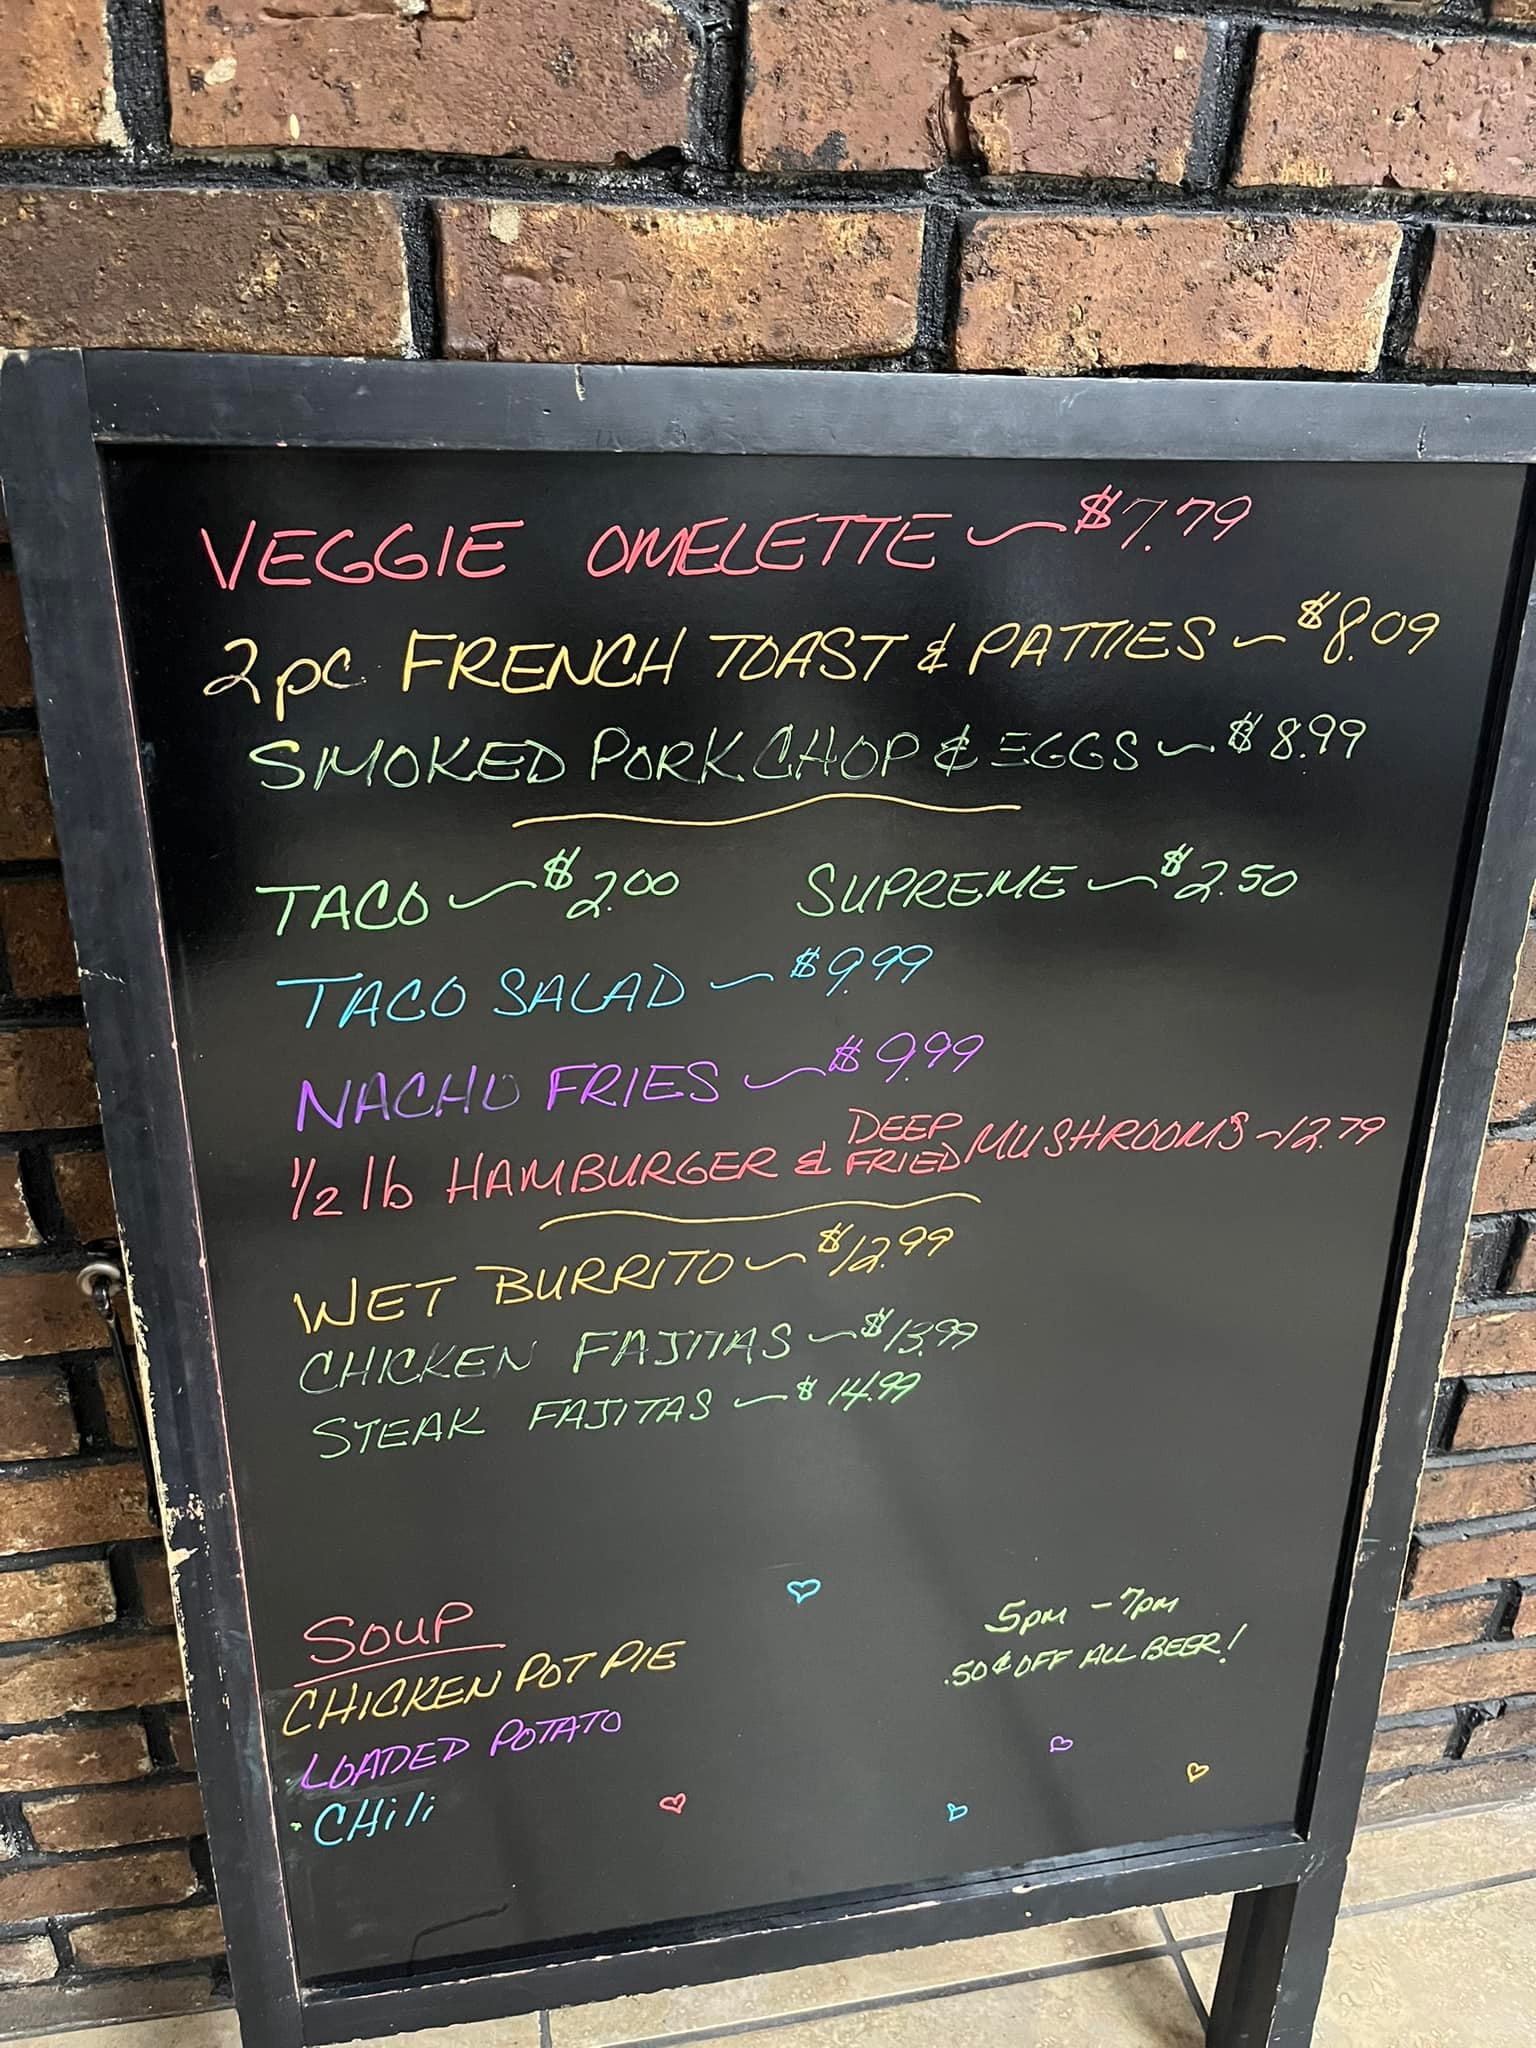 VEGGIE OMELETTE ~ $7.79
2pc FRENCH TOAST & PATTIES ~ $8.09
SMOKED PORK CHOP & EGGS ~ $8.99
TACO ~ $2.00 SUPREME ~ $2.50
TACO SALAD ~ $9.99
NACHO FRIES ~ $9.99
1/2 lb HAMBURGER & DEEP FRIED MUSHROOMS ~ 12.79
WET BURRITO ~ $12.99
CHICKEN FAJITAS ~ $13.99
STEAK FAJITAS ~ $14.99
SOUP
CHICKEN POT PIE
LOADED POTATO
CHili
5pm - 7pm
.50¢ OFF ALL BEER!